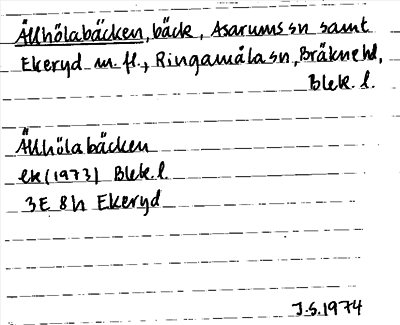 Ällhölabäcken, bäck, Asarums sn samt
Ekeryd m. fl., Ringamåla sn, Bräkne hd,
Blek. l.
Ällhölabäcken
ek (1973) Blek. l.
3E 8h Ekeryd
J.S. 1974